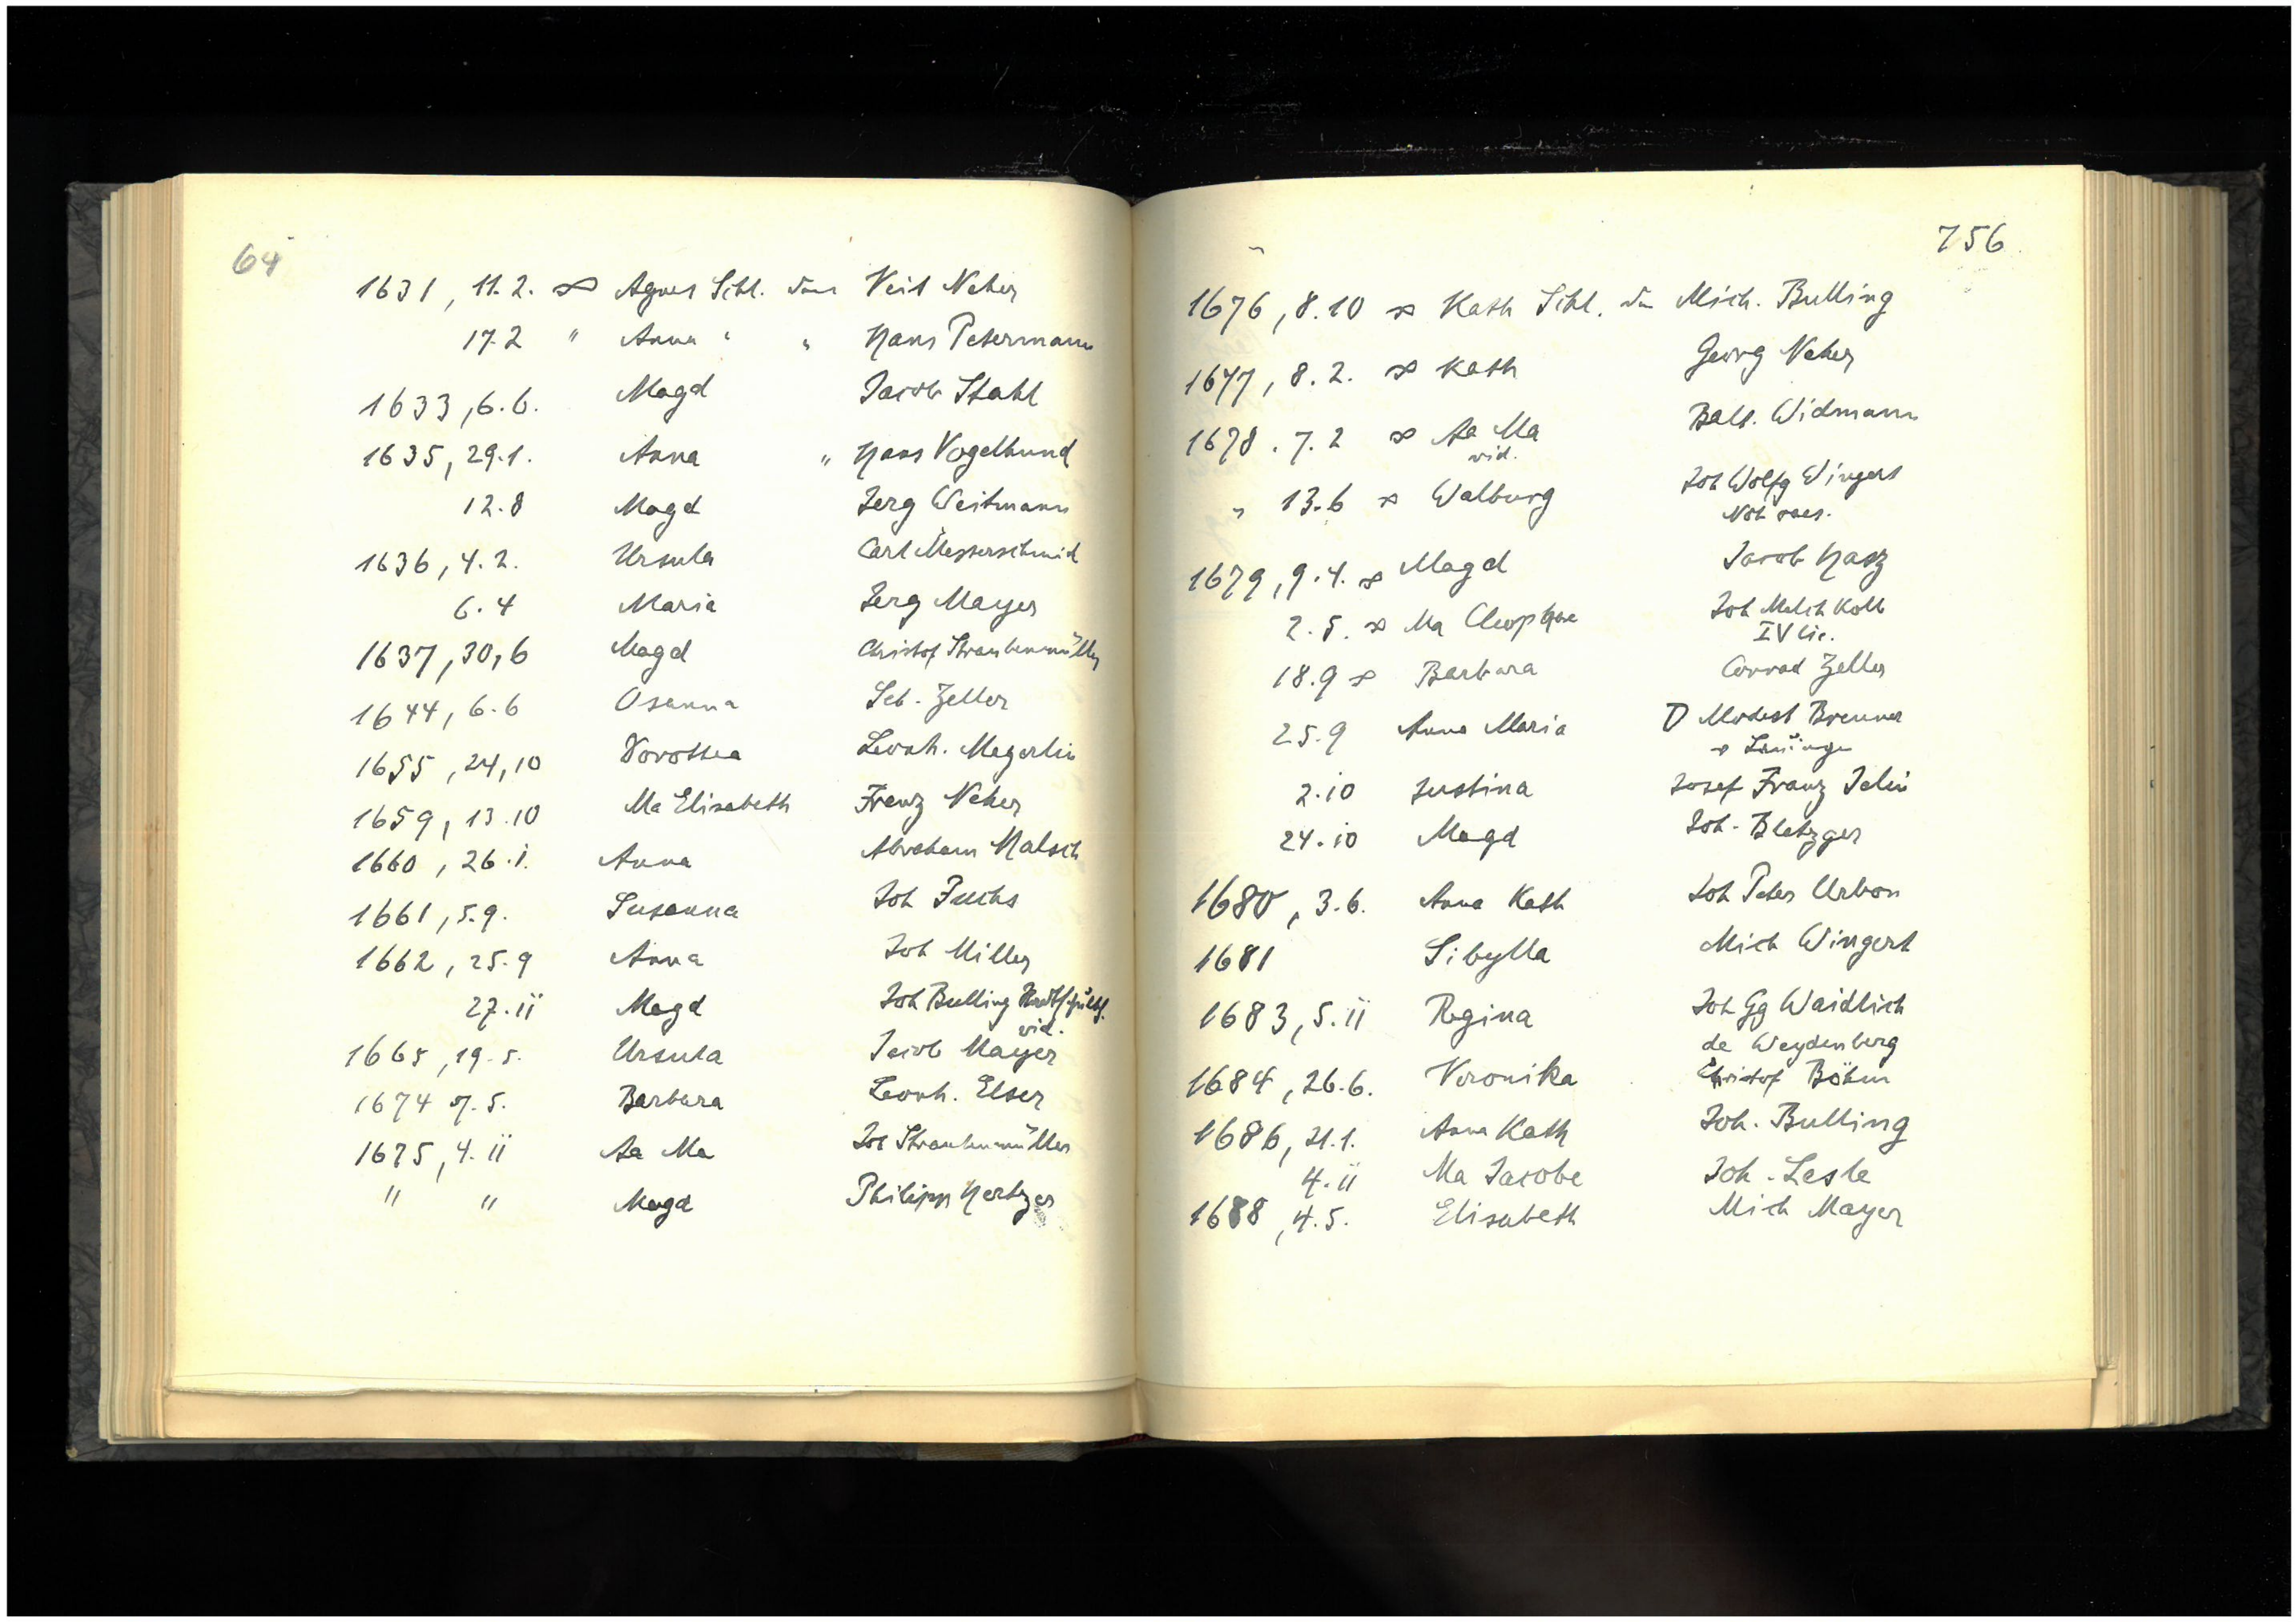 64
1631, 11.2. ∞ Agnes Schl. den Veit Neher
17.2 " Anna " " Hans Petermann
1633, 6.6. Magd Jacob Stahl
1635, 29.1. Anna " Hans Vogelhund
12.8 Magd Jerg Weitmann
1636, 4.2. Ursula Carl Messerschmid
6.4 Maria Jerg Mayer
1637, 30,6 Magd Christof Straubenmüller
1644, 6.6 Osanna Seb. Zeller
1655, 24,10 Dorothea Leonh. Megerlin
1659, 13.10 Ma Elisabeth Franz Neher
1660, 26.i. Anna Abraham Halsch
1661, 5.9. Susanna Joh Fuchs
1662, 25.9 Anna Joh Miller
27.ii Magd Joh Bulling
vid.
1665, 19.5. Ursula Jacob Mayer
1674 7.5. Barbara Leonh. Elser
1675, 4.ii Aa Ma Joh Straubenmüller
" " Magd Philipp Hertzer
756
1676, 8.10 ∞ Kath Schl. den Mich. Bulling
1677, 8.2. ∞ Kath Georg Neher
1678. 7.2 ∞ Aa Ma Balt. Widmann
vid.
" 13.6 ∞ Walburg Joh Wolfg Wingert
Not caes.
1679, 9.4. ∞ Magd Jacob Hasz
2.5. ∞ Ma Cleophae Joh Melch Kolb
IV lic.
18.9 ∞ Barbara Conrad Zeller
25.9 Anna Maria D Modest Brenner
2.10 Justina Josef Franz Jelin
24.10 Magd Joh. Bletzger
1680, 3.6. Anna Kath Joh Peter Urbon
1681 Sibylla Mich Wingert
1683, 5.ii Regina Joh Gg Waidlich
de Weydenberg
1684, 26.6. Veronika Christof Böhm
1686, 21.1. Anna Kath Joh. Bulling
4.ii Ma Jacobe Joh. Lesle
1688, 4.5. Elisabeth Mich Mayer